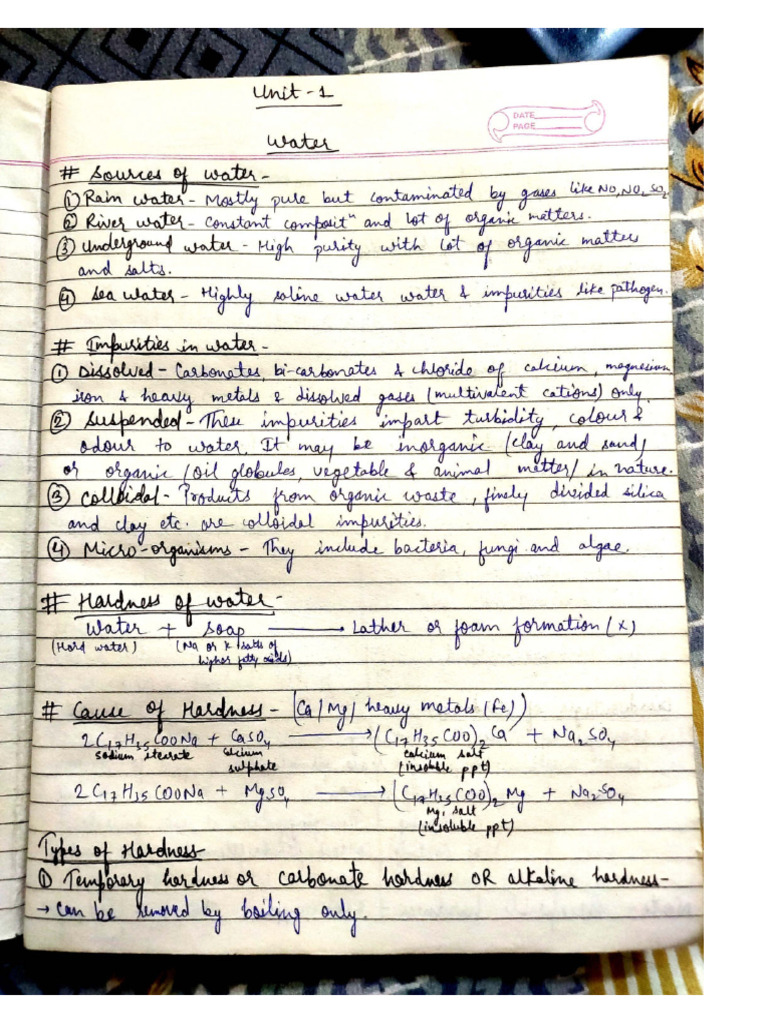 Unit-1
DATE
PAGE
Water
# Sources of water-
① Rain water - Mostly pure but contaminated by gases like NO, NO2, SO2
② River water - Constant composit" and lot of organic matters.
③ Underground water - High purity with lot of organic matter
and salts.
④ Sea water - Highly saline water water & impurities like pathogen.
# Impurities in water-
① Dissolved - Carbonates, bi-carbonates & chloride of calcium, magnesium
iron & heavy metals & dissolved gases (multivalent cations) only.
② Suspended - These impurities impart turbidity, colour &
odour to water. It may be inorganic (clay and sand)
or organic (oil globules, vegetable & animal matter) in nature.
③ Colloidal - Products from organic waste, finely divided silica
and clay etc. are colloidal impurities.
④ Micro-organisms - They include bacteria, fungi and algae.
# Hardness of water-
Water + Soap → Lather or foam formation (x)
(Hard water) (Na or K salts of
higher fatty acids)
# Cause of Hardness - (Ca/Mg/heavy metals (Fe))
2C17H35COONa + CaSO4 → (C17H35COO)2Ca + Na2SO4
sodium sterate calcium calcium salt
sulphate (insoluble ppt)
2C17H35COONa + MgSO4 → (C17H35COO)2Mg + Na2SO4
Mg, salt
(insoluble ppt)
Types of Hardness
① Temporary hardness or carbonate hardness OR alkaline hardness-
→ can be removed by boiling only.